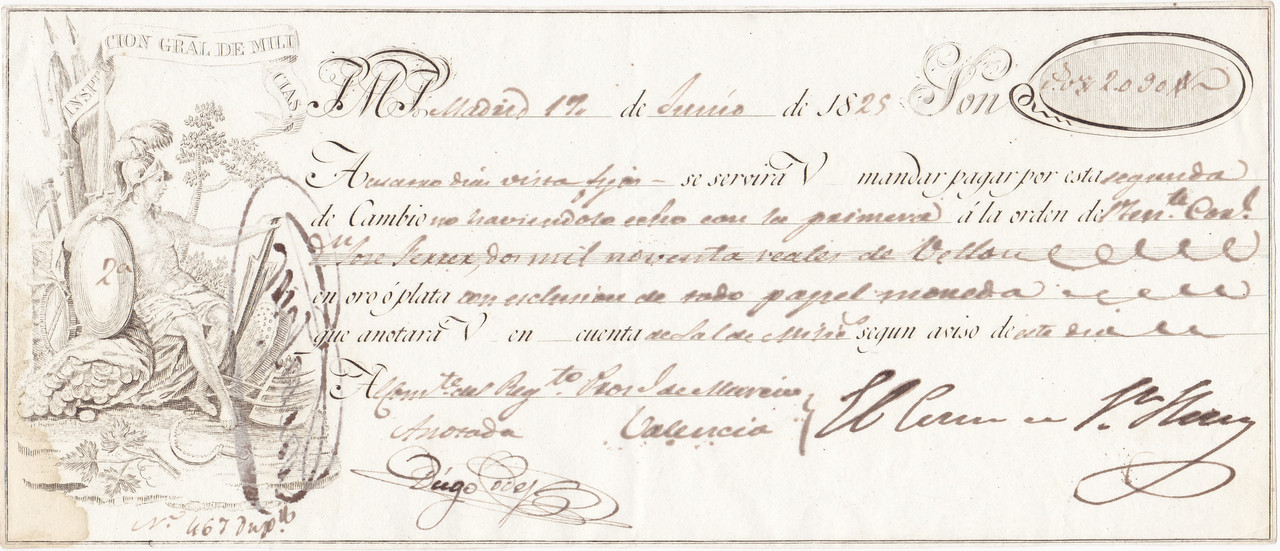 INSPECCION GRĀL DE MILICIAS
Madrid 17 de Junio de 1825 Son Rs. vn 2090
A ocho días vista fijos se servirá V mandar pagar por esta segunda
de Cambio no haviendolo echo con la primera á la orden del Ten.te Cor.l
dn. Jose Ferrer, dos mil noventa reales de Vellon
en oro ó plata con esclusion de todo papel moneda
que anotará V en cuenta de Sal de segun aviso de este dia
2a
Al Com.te del Reg.to Prov.l de Murcia
Anotada Valencia
El Conde de
Diego
N.o 467 Dup.do